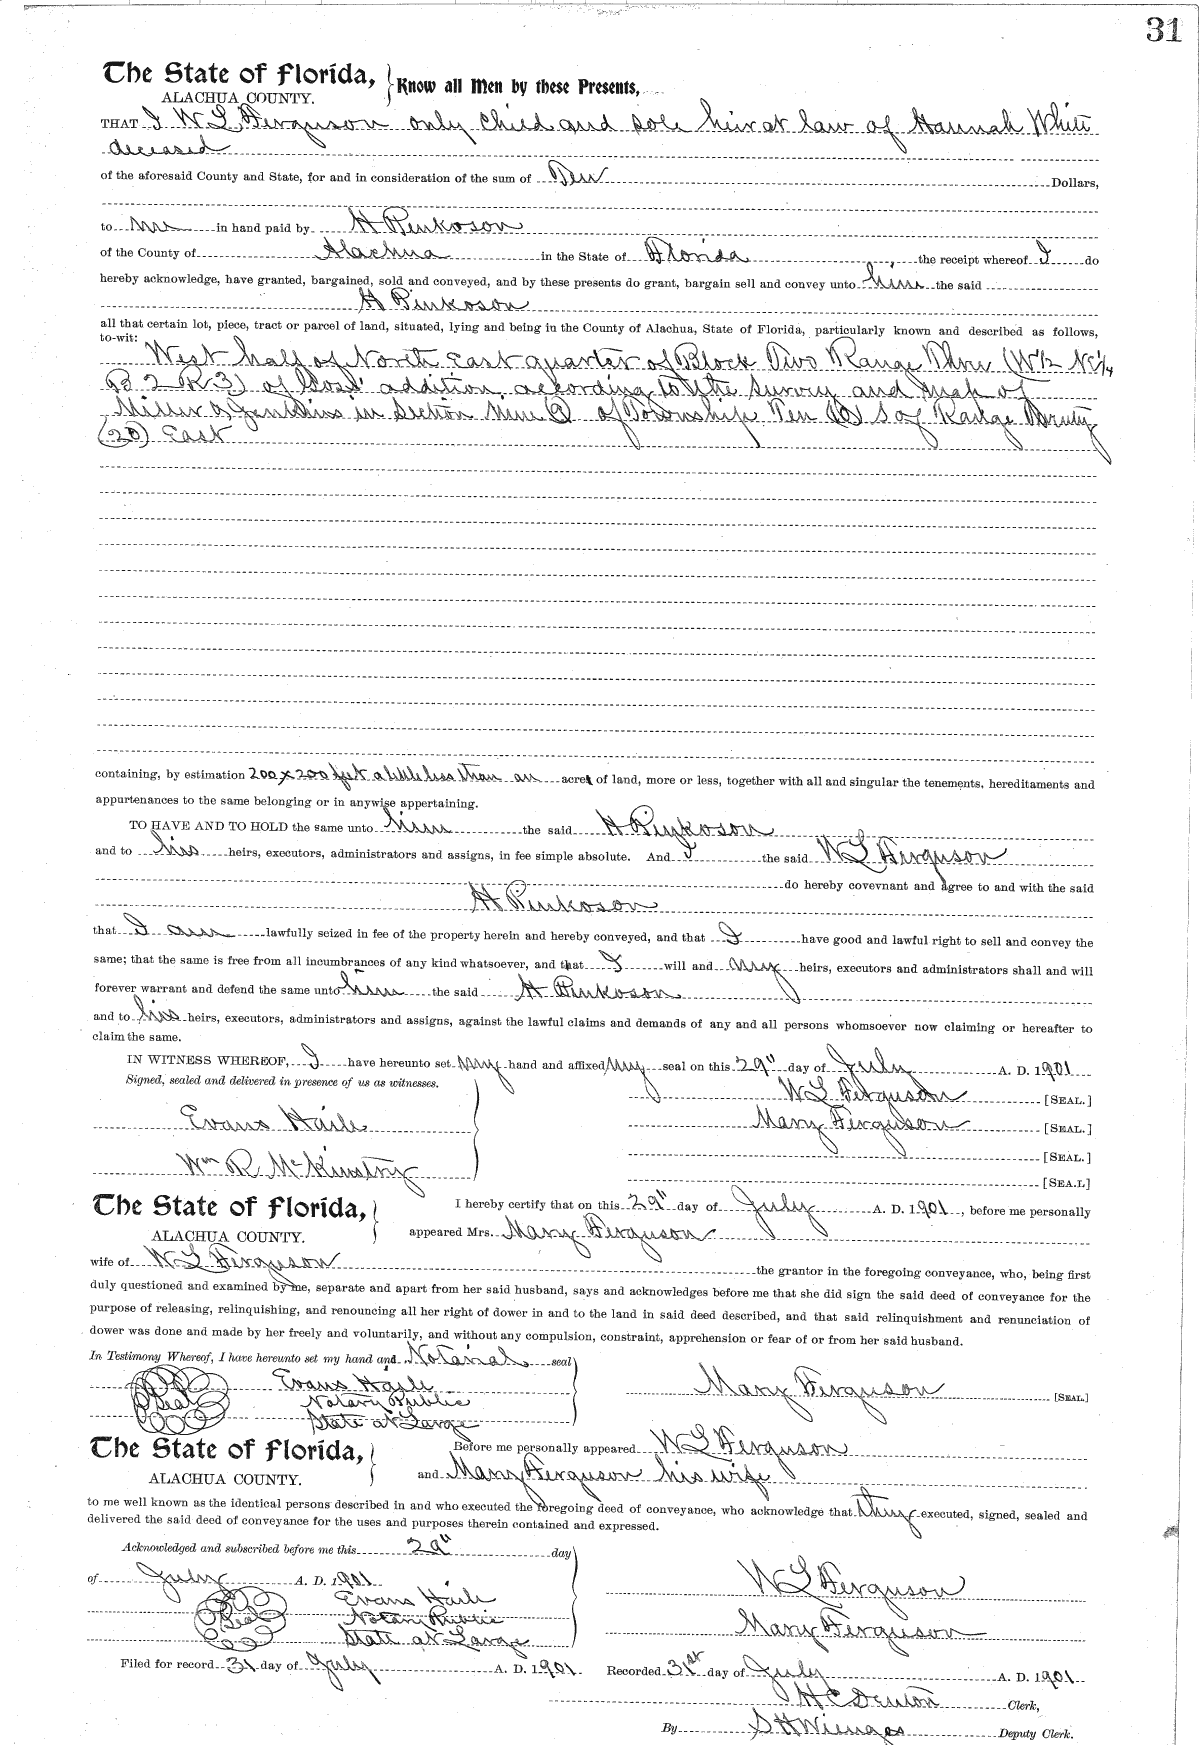 31
The State of Florida, } Know all Men by these Presents,
ALACHUA COUNTY.
THAT I W L Ferguson only child and sole heir at law of Hannah White
deceased
of the aforesaid County and State, for and in consideration of the sum of Ten Dollars,
to me in hand paid by H Pinkoson
of the County of Alachua in the State of Florida, the receipt whereof I do
hereby acknowledge, have granted, bargained, sold and conveyed, and by these presents do grant, bargain sell and convey unto him the said
H Pinkoson
all that certain lot, piece, tract or parcel of land, situated, lying and being in the County of Alachua, State of Florida, particularly known and described as follows,
to-wit:
West half of North East quarter of Block Two Range Three (W½ NE¼
B 2 R 3) of Goss' addition, according to the survey and map of
Miller & Jenkins in Section Nine (9) of Township Ten (10) S of Range Twenty
(20) East
containing, by estimation 200 x 200 feet a little less than an acre of land, more or less, together with all and singular the tenements, hereditaments and
appurtenances to the same belonging or in anywise appertaining.
TO HAVE AND TO HOLD the same unto him the said H Pinkoson
and to his heirs, executors, administrators and assigns, in fee simple absolute. And I the said W L Ferguson
do hereby covevnant and agree to and with the said
H Pinkoson
that I am lawfully seized in fee of the property herein and hereby conveyed, and that I have good and lawful right to sell and convey the
same; that the same is free from all incumbrances of any kind whatsoever, and that I will and my heirs, executors and administrators shall and will
forever warrant and defend the same unto him the said H Pinkoson
and to his heirs, executors, administrators and assigns, against the lawful claims and demands of any and all persons whomsoever now claiming or hereafter to
claim the same.
IN WITNESS WHEREOF, I have hereunto set my hand and affixed my seal on this 29" day of July A. D. 1901
Signed, sealed and delivered in presence of us as witnesses.
W L Ferguson [SEAL.]
Evans Haile
Mary Ferguson [SEAL.]
[SEAL.]
Wm R. McKinstry
[SEA.L]
The State of Florida, } I hereby certify that on this 29" day of July A. D. 1901, before me personally
ALACHUA COUNTY. appeared Mrs. Mary Ferguson
wife of W L Ferguson the grantor in the foregoing conveyance, who, being first
duly questioned and examined by me, separate and apart from her said husband, says and acknowledges before me that she did sign the said deed of conveyance for the
purpose of releasing, relinquishing, and renouncing all her right of dower in and to the land in said deed described, and that said relinquishment and renunciation of
dower was done and made by her freely and voluntarily, and without any compulsion, constraint, apprehension or fear of or from her said husband.
In Testimony Whereof, I have hereunto set my hand and Notarial seal
Evans Haile
Mary Ferguson [SEAL.]
Seal Notary Public
State at Large
The State of Florida, } Before me personally appeared W L Ferguson
ALACHUA COUNTY. and Mary Ferguson his wife
to me well known as the identical persons described in and who executed the foregoing deed of conveyance, who acknowledge that they executed, signed, sealed and
delivered the said deed of conveyance for the uses and purposes therein contained and expressed.
Acknowledged and subscribed before me this 29" day
of July A. D. 1901
W L Ferguson
Evans Haile
Seal Notary Public
Mary Ferguson
State at Large
Filed for record 31 day of July A. D. 1901 Recorded 31st day of July A. D. 1901
H C Denton Clerk,
By S H Wienges Deputy Clerk.